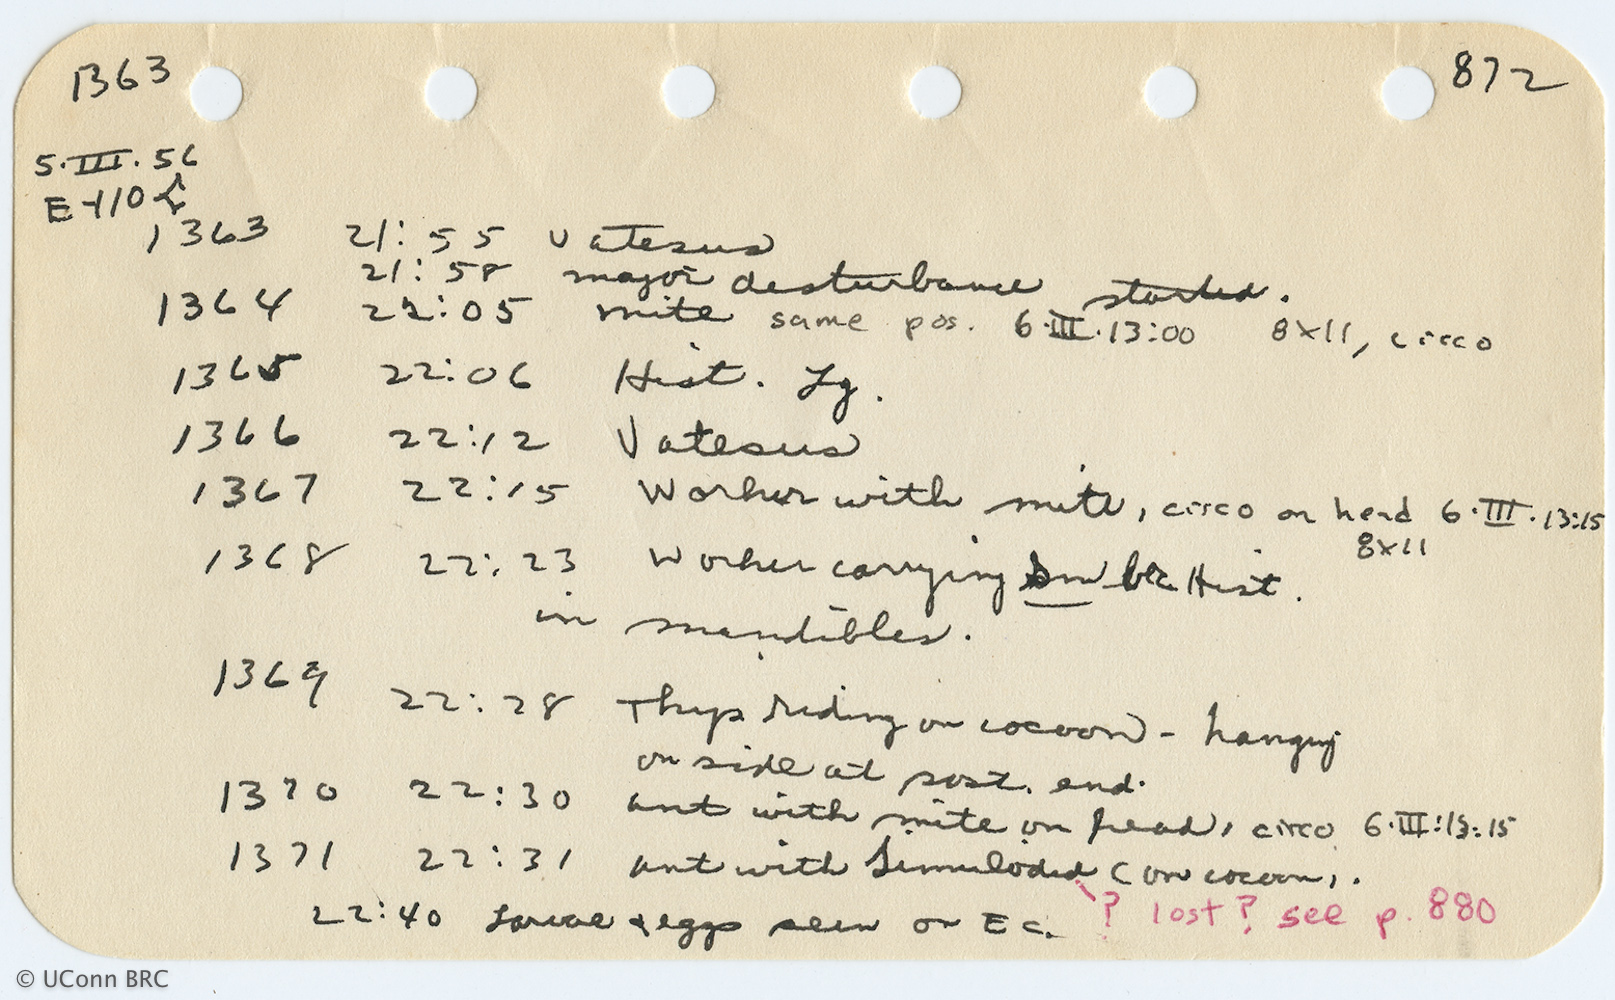 1363 872
5·III·56
E-110
1363 21:55 Vatesus
21:58 major desturbance started.
1364 22:05 mite same pos. 6·III·13:00 8x11, circo
1365 22:06 Hist. Lg.
1366 22:12 Vatesus
1367 22:15 Worker with mite, circo on head 6·III·13:15
8x11
1368 22:23 Worker carrying sm Hist.
in mandibles.
1369 22:28 Thyps riding on cocoon - hanging
on side at post. end.
1370 22:30 ant with mite on head, circo 6·III:13:15
1371 22:31 ant with C on cocoon,.
22:40 Larvae & eggs seen on E c. ? lost? see p. 880
© UConn BRC